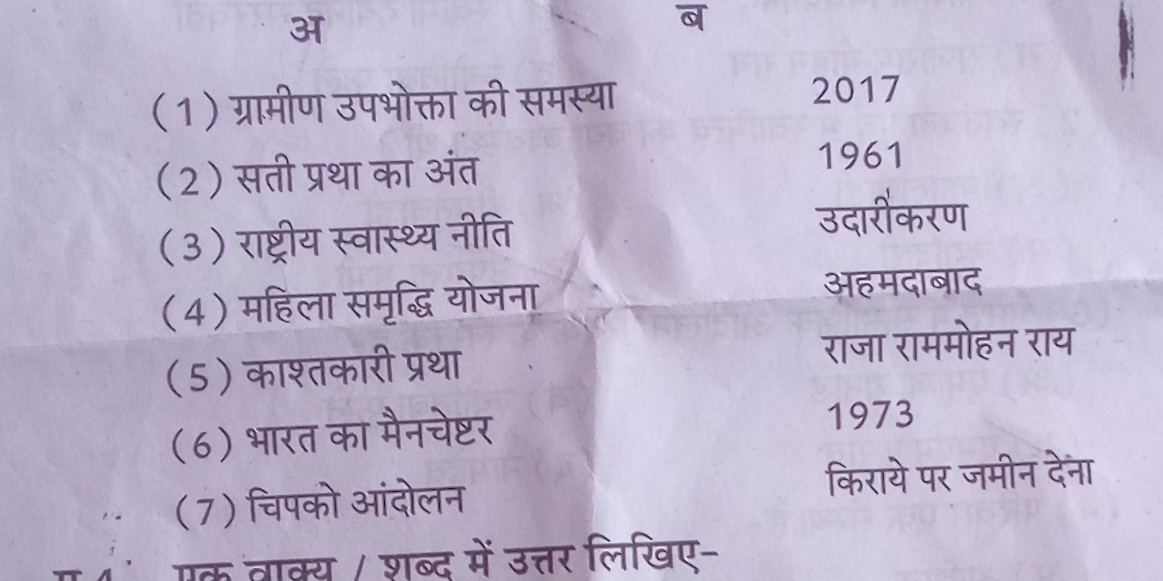 अ ब
(1) ग्रामीण उपभोक्ता की समस्या 2017
(2) सती प्रथा का अंत 1961
(3) राष्ट्रीय स्वास्थ्य नीति उदारीकरण
(4) महिला समृद्धि योजना अहमदाबाद
(5) काश्तकारी प्रथा राजा राममोहन राय
(6) भारत का मैनचेष्टर 1973
(7) चिपको आंदोलन किराये पर जमीन देना
एक वाक्य / शब्द में उत्तर लिखिए-